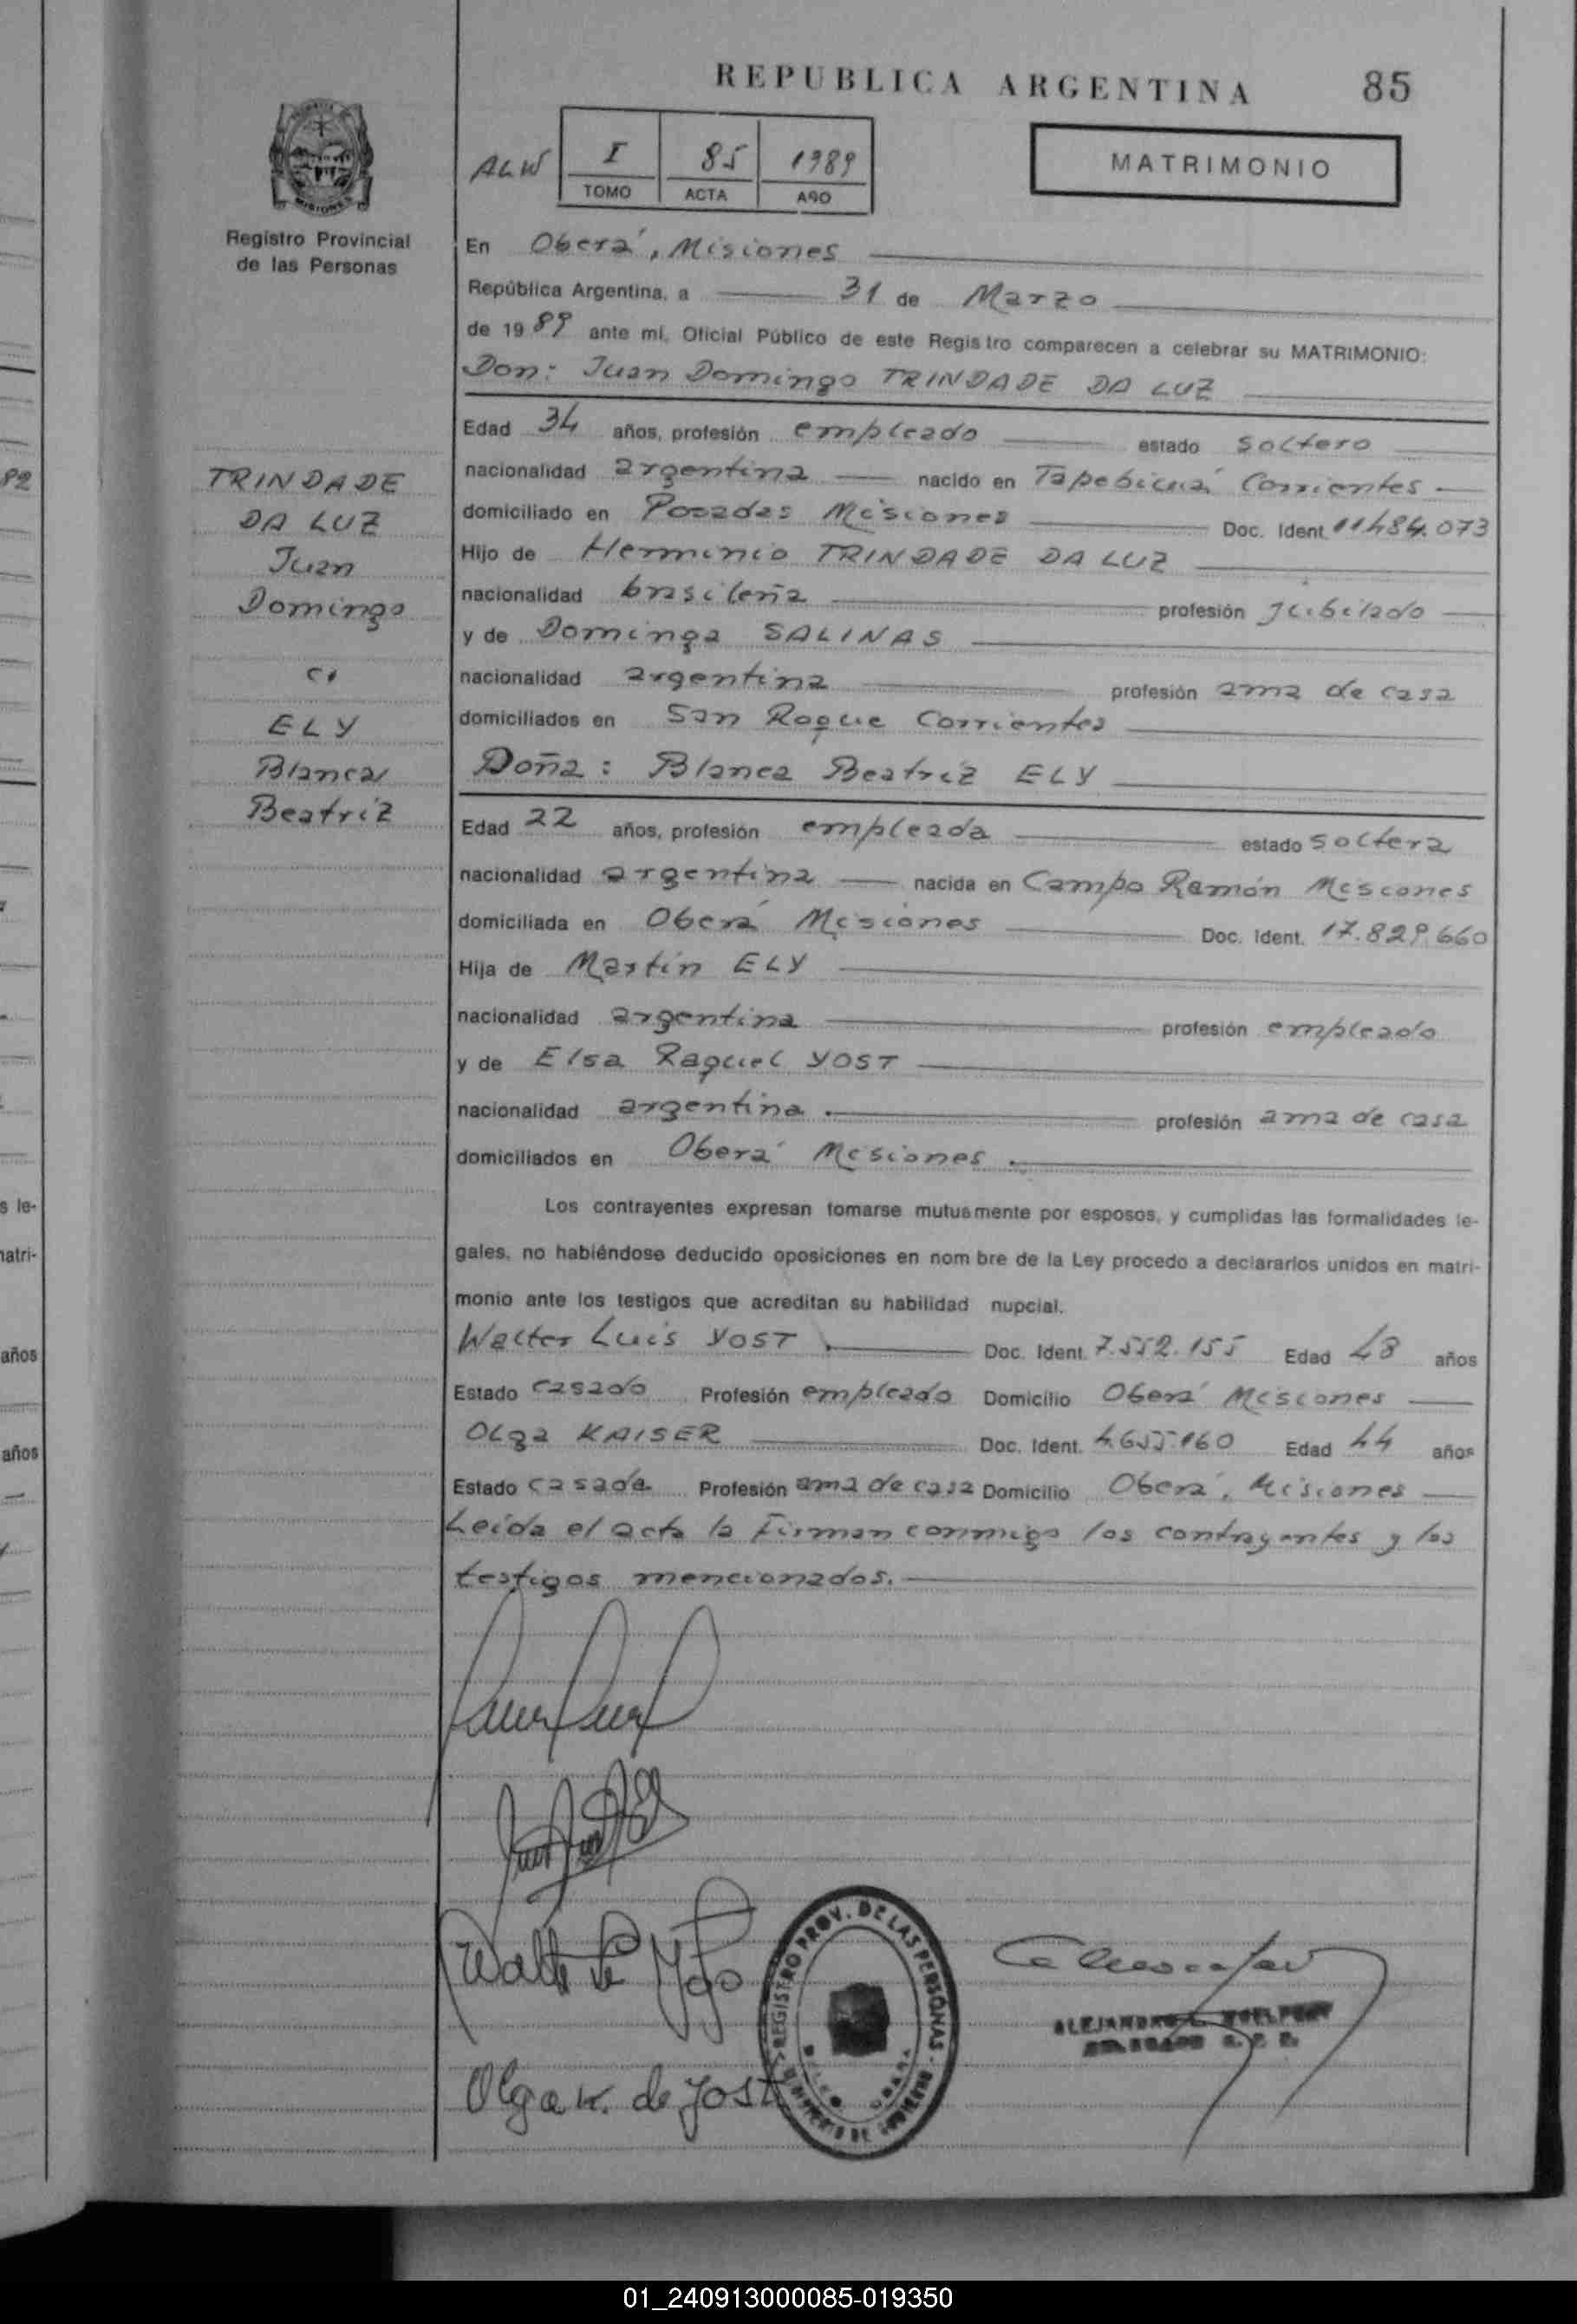 REPUBLICA ARGENTINA 85
ALW I 85 1989
TOMO ACTA AÑO
MATRIMONIO
Registro Provincial
de las Personas
En Oberá, Misiones
República Argentina, a 31 de Marzo
de 1989 ante mí, Oficial Público de este Registro comparecen a celebrar su MATRIMONIO:
Don: Juan Domingo TRINDADE DA LUZ
Edad 34 años, profesión empleado estado soltero
nacionalidad argentina nacido en Tapebicuá Corrientes
domiciliado en Posadas Misiones Doc. Ident. 11484.073
Hijo de Herminio TRINDADE DA LUZ
nacionalidad brasileña profesión jubilado
y de Dominga SALINAS
nacionalidad argentina profesión ama de casa
domiciliados en San Roque Corrientes
Doña: Blanca Beatriz ELY
Edad 22 años, profesión empleada estado soltera
nacionalidad argentina nacida en Campo Ramón Misiones
domiciliada en Oberá Misiones Doc. Ident. 17.829.660
Hija de Martín ELY
nacionalidad argentina profesión empleado
y de Elsa Raquel YOST
nacionalidad argentina. profesión ama de casa
domiciliados en Oberá Misiones.
Los contrayentes expresan tomarse mutuamente por esposos, y cumplidas las formalidades le-
gales, no habiéndose deducido oposiciones en nombre de la Ley procedo a declararlos unidos en matri-
monio ante los testigos que acreditan su habilidad nupcial.
Walter Luis YOST Doc. Ident. 7.552.155 Edad 48 años
Estado casado Profesión empleado Domicilio Oberá Misiones
Olga KAISER Doc. Ident. 4.655.160 Edad 44 años
Estado casada Profesión ama de casa Domicilio Oberá, Misiones
Leída el acta la Firman conmigo los contrayentes y los
testigos mencionados.
TRINDADE
DA LUZ
Juan
Domingo
c/
ELY
Blanca
Beatriz
82
s le-
natri-
años
años
Olga K. de Jost
REGISTRO PROV. DE LAS PERSONAS
MINISTERIO DE GOBIERNO
OBERA
ALEJANDRO
01_240913000085-019350